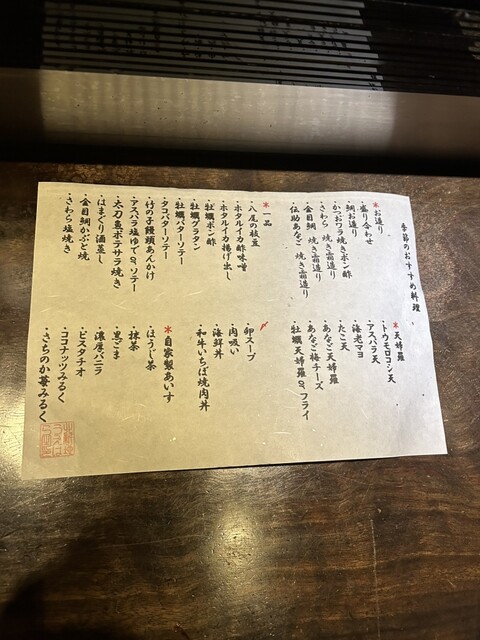 季節のおすすめ料理
*お造り
・盛り合わせ
・鯛お造り
・かつおワラ焼きポン酢
・さわら 焼き霜造り
・金目鯛 焼き霜造り
・伝助あなご 焼き霜造り
*一品
・八尾の枝豆
・ホタルイカ酢味噌
・ホタルイカ揚げ出し
・牡蠣ポン酢
・牡蠣グラタン
・牡蠣バターソテー
・タコバターソテー
・竹の子饅頭あんかけ
・アスパラ塩ゆでorソテー
・太刀魚ポテサラ焼き
・はまぐり酒蒸し
・金目鯛かぶと焼
・さわら塩焼き
*天婦羅
・トウモロコシ天
・アスパラ天
・海老マヨ
・たこ天
・あなご天婦羅
・あなご梅チーズ
・牡蠣天婦羅orフライ
卵スープ
・肉吸い
・海鮮丼
・和牛いちぼ焼肉丼
*自家製あいす
・ほうじ茶
・抹茶
・黒ごま
・濃厚バニラ
・ピスタチオ
・ココナッツみるく
・さちのか苺みるく